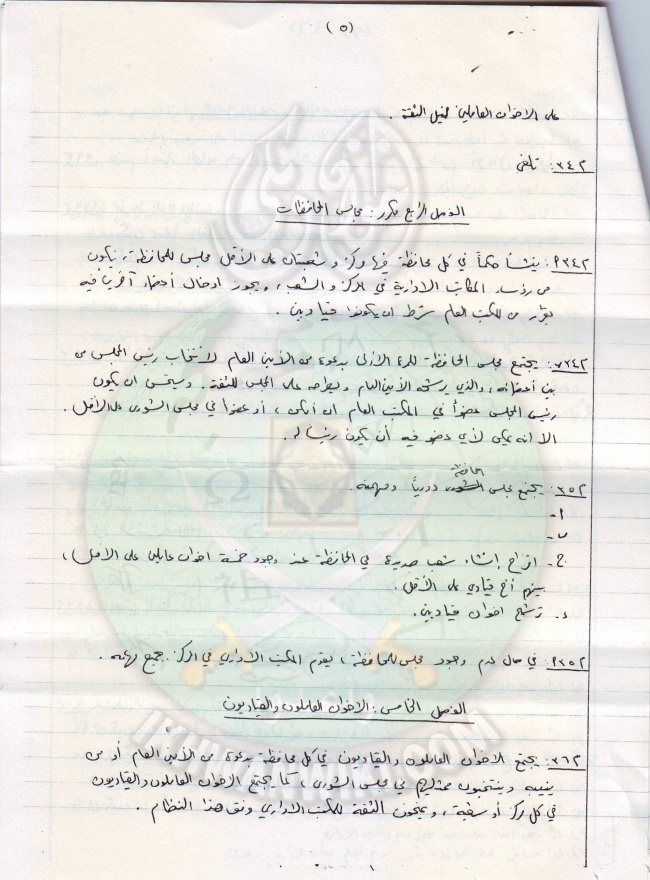 (٥)
على الاخوان العاملين لنيل الثقة .
م٣٤٢: تلغى
الفصل الرابع مكرر: مجالس المحافظات
م٣٤٢: ينشأ حكماً في كل محافظة فيها مركز وشعبتان على الأقل مجلس للمحافظة، يتكون
من رؤساء المكاتب الادارية في المركز والشعب، ويجوز ادخال أعضاء آخرين فيه
بقرار من المكتب العام شرط ان يكونوا قياديين .
م٣٤٢: يجتمع مجلس المحافظة للمرة الأولى بدعوة من الأمين العام لانتخاب رئيس المجلس من
بين أعضائه، والذي يرشحه الأمين العام ويطرحه على المجلس للثقة . ويستحسن ان يكون
رئيس المجلس عضواً في المكتب العام ان أمكن، أو عضواً في مجلس الشورى على الاقل .
الا انه يمكن لأي عضو فيه أن يكون رئيساً له .
م٣٥٢: يجتمع مجلس المحافظة دورياً ومهمته :
أ-
ب-
ج- اقتراح إنشاء شعب جديدة في المحافظة عند وجود خمسة اخوان عاملين على الأقل،
بينهم أخ قيادي على الأقل .
د. ترشيح اخوان قياديين .
م٣٥٢: في حال عدم وجود مجلس للمحافظة، يقوم المكتب الاداري في المركز بجميع مهامه .
الفصل الخامس: الاخوان العاملون والقياديون
م٣٦٢: يجتمع الاخوان العاملون والقياديون في كل محافظة بدعوة من الأمين العام أو من
ينيبه وينتخبون ممثليهم في مجلس الشورى، كما يجتمع الاخوان العاملون والقياديون
في كل مركز أو شعبة، ويمنحون الثقة للمكتب الاداري وفق هذا النظام .
IKHWANWIKI.COM